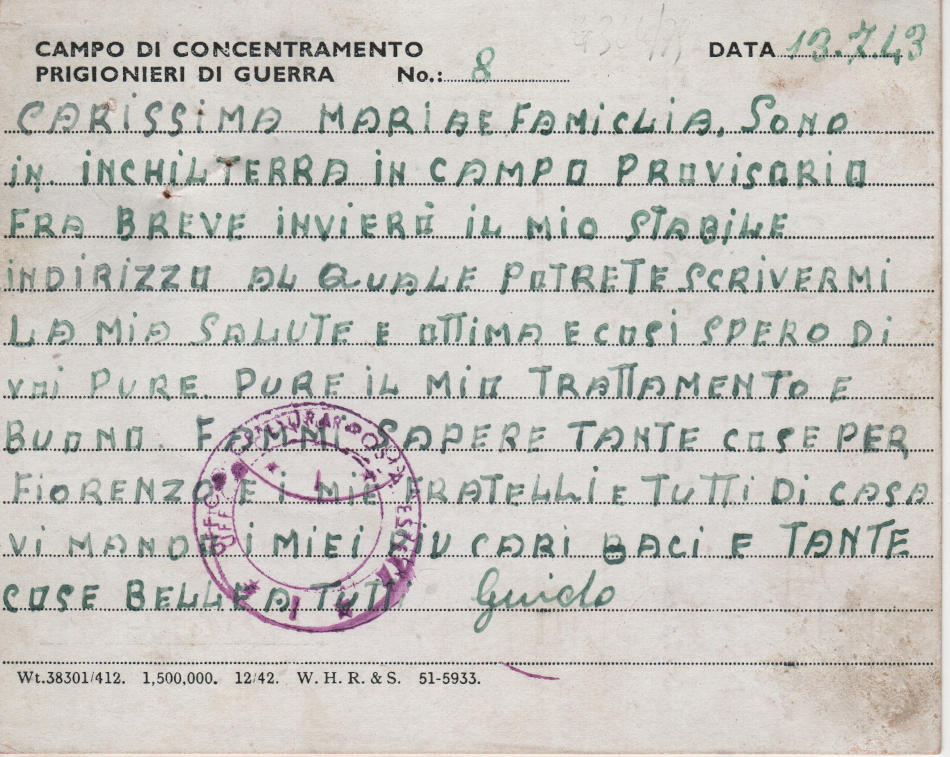 CAMPO DI CONCENTRAMENTO
PRIGIONIERI DI GUERRA No.: 8
DATA 13.7.43
CARISSIMA MARIA E FAMIGLIA. SONO
IN. INCHILTERRA IN CAMPO PROVISORIO
FRA BREVE INVIERÒ IL MIO STABILE
INDIRIZZO AL QUALE POTRETE SCRIVERMI
LA MIA SALUTE E OTTIMA E COSI SPERO DI
VOI PURE. PURE IL MIO TRATTAMENTO E
BUONO. FAMMI SAPERE TANTE COSE PER
FIORENZO E I MIE FRATELLI E TUTTI DI CASA
VI MANDO I MIEI PIU CARI BACI E TANTE
COSE BELLE A TUTTI Guido
Wt.38301/412. 1,500,000. 12/42. W. H. R. & S. 51-5933.